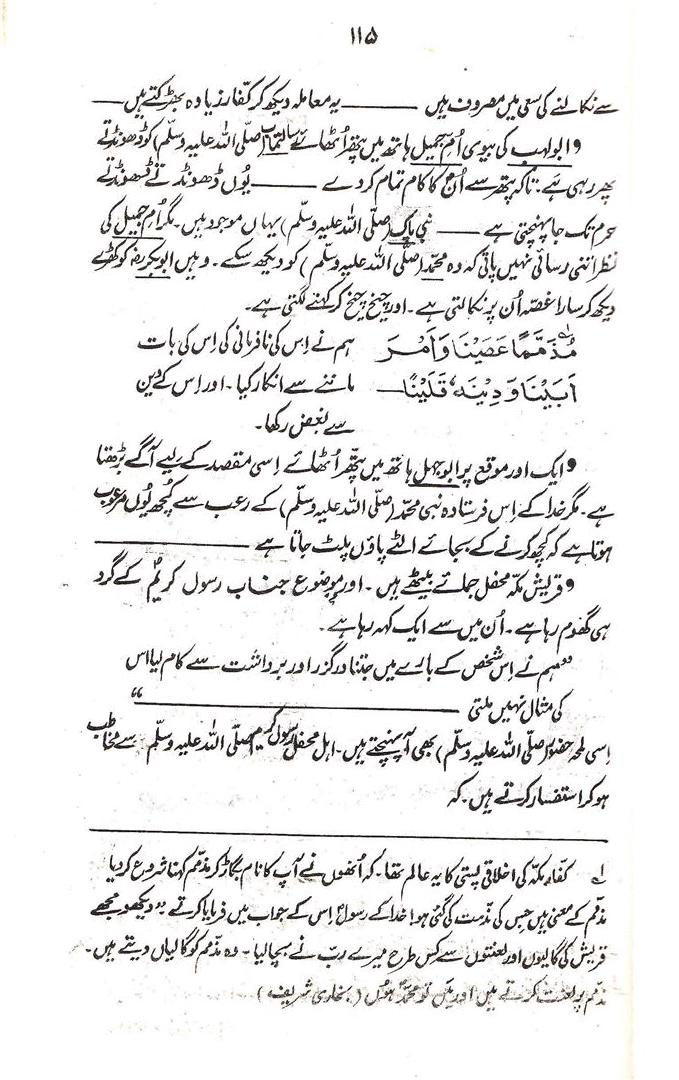 ۱۱۵
سے نکالنے کی سعی میں مصروف ہیں ——— یہ معاملہ دیکھ کر کفّار زیادہ بھڑکتے ہیں ———
• ابولہب کی بیوی اُمِ جمیل ہاتھ میں پتھر اُٹھائے رسالتمآب (صلّی اللہ علیہ وسلّم) کو ڈھونڈتے
پھر رہی ہے۔ تاکہ پتھر سے اُن کا کام تمام کر دے ——— یُوں ڈھونڈتے ڈھونڈتے
حرم تک جا پہنچتی ہے ——— نبی پاک (صلّی اللہ علیہ وسلّم) یہاں موجود ہیں۔ مگر اُمِ جمیل کی
نظر اتنی رسائی نہیں پاتی کہ وہ محمّد (صلّی اللہ علیہ وسلّم) کو دیکھ سکے۔ وہیں ابوبکرؓ کو کھڑے
دیکھ کر سارا غصّہ اُن پر نکالتی ہے۔ اور چیخ چیخ کر کہنے لگتی ہے۔
مُذَمَّمًا عَصَيْنَا وَاَمْرَ ہم نے اِس کی نافرمانی کی اِس کی بات
اَبَيْنَا وَدِيْنَهٗ قَلَيْنَا— ماننے سے انکار کیا۔ اور اِس کے دین
سے بُغض رکھا۔
• ایک اور موقع پر ابوجہل ہاتھ میں پتھر اُٹھائے اِسی مقصد کے لیے آگے بڑھتا
ہے۔ مگر خدا کے اِس فرستادہ نبی محمّد (صلّی اللہ علیہ وسلّم) کے رعب سے کُچھ یُوں مرعوب
ہوتا ہے کہ کچھ کرنے کے بجائے الٹے پاؤں پلٹ جاتا ہے ———
• قریشِ مکّہ محفل جمائے بیٹھے ہیں۔ اور موضوع جناب رسول کریمؐ کے گرد
ہی گھوم رہا ہے۔ اُن میں سے ایک کہہ رہا ہے۔
”ہم نے اِس شخص کے بارے میں جتنا درگزر اور برداشت سے کام لیا اس
کی مثال نہیں ملتی ———“
اِسی لمحہ حضور (صلّی اللہ علیہ وسلّم) بھی آ پہنچتے ہیں۔ اہلِ محفل رسول کریم صلّی اللہ علیہ وسلّم سے مخاطب
ہو کر استفسار کرتے ہیں۔ کہ
لہ کفّارِ مکّہ کی اخلاقی پستی کا یہ عالم تھا۔ کہ اُنھوں نے آپ کا نام بگاڑ کر مذمّم کہنا شروع کر دیا
مذمّم کے معنی ہیں جس کی مذمت کی گئی ہو! خدا کے رسولؐ اِس کے جواب میں فرمایا کرتے ”دیکھو مجھے
قریش کی گالیوں اور لعنتوں سے کس طرح میرے ربّ نے بچا لیا۔ وہ مذمّم کو گالیاں دیتے ہیں۔
مذمّم پر لعنت کرتے ہیں اور میں تو محمّدؐ ہوں (بخاری شریف)